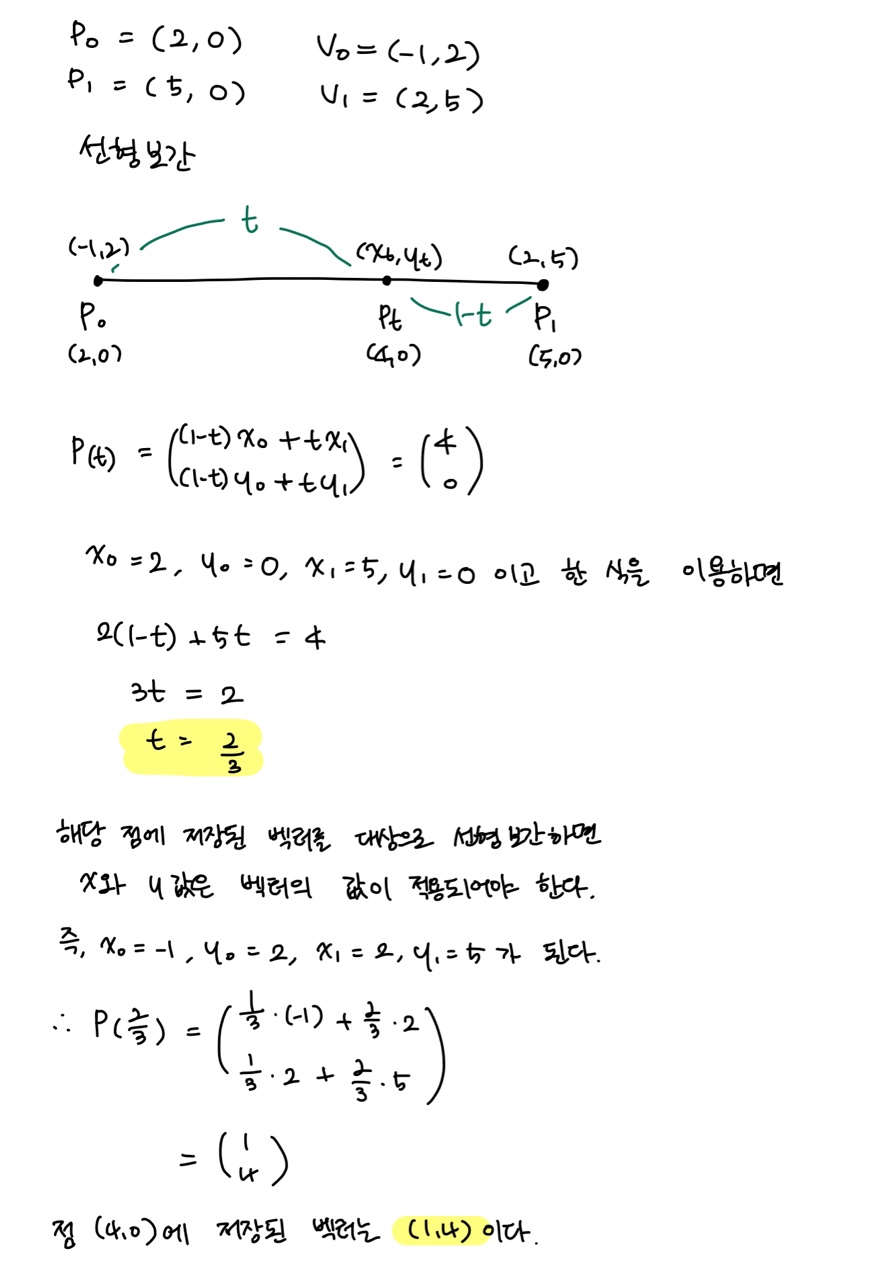 P₀ = (2, 0) V₀ = (-1, 2)
P₁ = (5, 0) V₁ = (2, 5)
선형보간
t
(-1,2) (xₜ, yₜ) (2, 5)
P₀ Pt 1-t P₁
(2,0) (4,0) (5,0)
P(t) = ((1-t)x₀ + tx₁ = (4
(1-t)y₀ + ty₁) 0)
x₀ = 2, y₀ = 0, x₁ = 5, y₁ = 0 이고 한 식을 이용하면
2(1-t) + 5t = 4
3t = 2
t = 2/3
해당 점에 저장된 벡터를 대상으로 선형보간하면
x와 y값은 벡터의 값이 적용되어야 한다.
즉, x₀ = -1, y₀ = 2, x₁ = 2, y₁ = 5 가 된다.
∴ P(2/3) = (1/3 · (-1) + 2/3 · 2
1/3 · 2 + 2/3 · 5)
= (1
4)
점 (4,0)에 저장된 벡터는 (1,4) 이다.